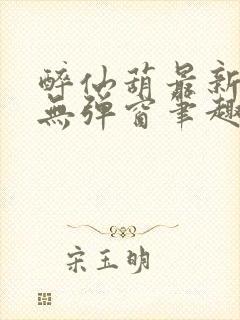 醉仙葫最新
無彈窗筆趣
宋玉明